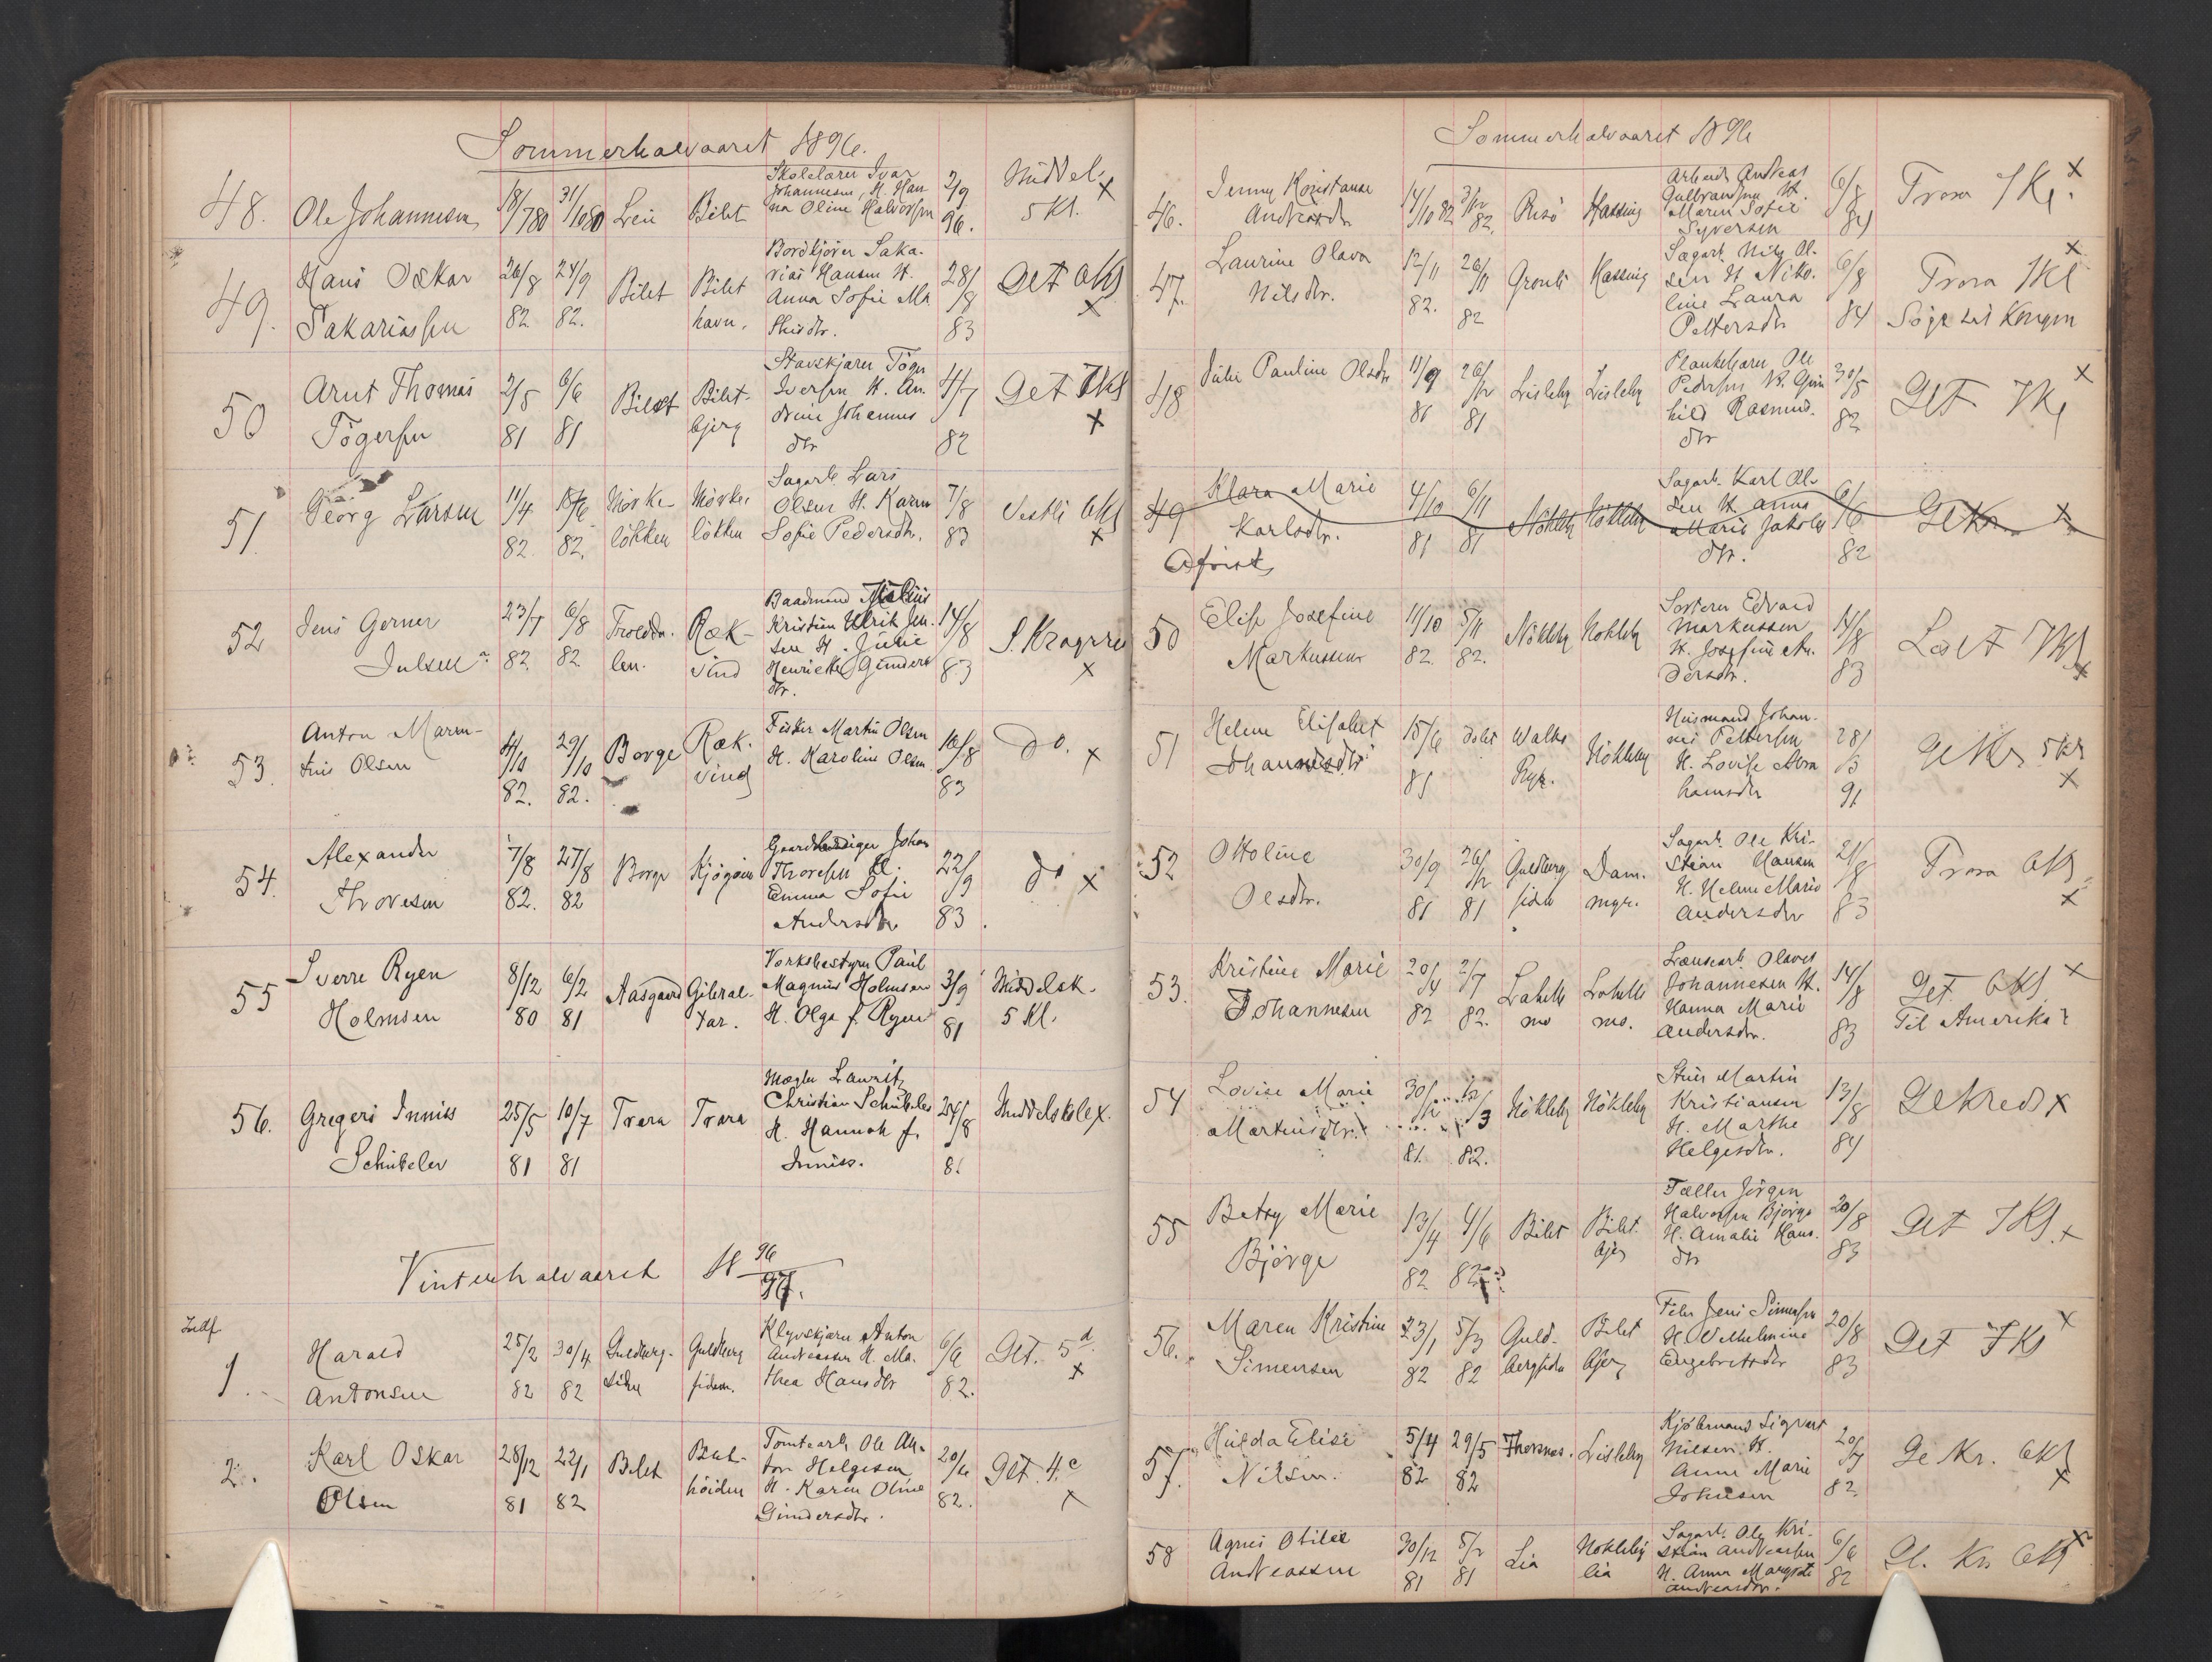 Sommerhalvaaret 1896.
48. Ole Johannesen 18/7 80 31/10 80 Leie Bilet Skolelærer Ivar Johannesen, H. Hanna Oline Halvorsen 2/9 96. Middels. 5 Kl. x
49. Hans Oskar Sakariassen 26/8 82 24/9 82. Bilet Bilet havn. Bordkjører Sakarias Hansen H. Anna Sofie Ma 28/8 83 Get 6Kl x
50 Arnt Thomas Tögersen 2/5 81 6/6 81 Bilet Bilet- bjerg Stavskjærer Töger Iversen H. Andrine Johannes dtr 4/7 82 Get 7Kl x
51. Georg Larsen 11/4 82. 82. Mörke- lökken Mörke lökken Sagarb Lars Olsen H. Karen Sofie Pedersdtr. 7/8 83 Vestli 6Kl x
52 Jens Gerner Julsen 23/7 82. 6/8 82 Rök- vind Baadmand Kristian Ulrik Jensen H. Julie Henriette Gunders dtr. 14/8 83 S. Krapro x
53. Anton Marentius Olsen 4/10 82. 29/10 82. Borge Ræk. vind Fisker Martin Olsen H. Karoline Olsen 16/8 83 do. x
54. Alexander Thoresen 7/8 82. 27/8 82 Borge Kjögöien Johan Thoresen H. Emma Sofie Andersdtr 22/9 83. do x
55 Sverre Ryen Holmsen 8/12 80 6/2 81 Aasgaard Gibral- tar. Værksbestyrer Paul Magnus Holmsen H. Olga f. Ryen 3/9 81 Middelsk. 5 Kl.
56. Gregers Inniss Schübeler 25/5 81 10/7 81 Trara Trara Mægler Lauritz Christian Schübeler H. Hannah f. Inniss. 24/8 81 Middelskole x.
Vinterhalvaaret 96/97.
Indf
1. Harald Antonsen 25/2 82 30/4 82 Guldberg- siden Guldberg siden. Klyvskjærer Anton Andreassen H. Mathea Hansdtr 6/6 82. Get. 5d. x
2. Karl Oskar Olsen 28/12 81 22/1 82 Bilet Bilet- höiden Tomtearb Ole Anton Helgesen H. Karen Oline Gundersdtr. 20/6 82. Get. 4.c x
Sommerhalvaaret 1896
46. Jenny Konstanse Andreasdtr 14/10 82 3/12 82. Risö Hassing Arbeider Andreas Gulbrandsen H. Maren Sofie Syversen 6/8 84 Trara 7Kl. x
47. Laurine Olava Nilsdtr. 12/11 82. 26/11 82 Grönli Hassing Sagarb Nils Olsen H. Nikoline Laura Pettersdtr 6/8 84 Trara 7Kl x
48 Julie Pauline Olsdtr 11/9 81 26/12 81 Lisleby Lisleby Plankebærer Ole Pedersen H. Gunhild Rasmusdtr 30/5 82 Get 7Kl x
49 Klara Marie Karlsdtr. 4/10 81 6/11 81 Nökleby Nökleby Sagarb. Karl Olsen H. Anna Marie Jakobsdtr. 6/6 82 GeKr x
Afreist
50 Elise Josefine Markussen 11/10 82. 5/11 82. Nökleby Nokleby Sorterer Edvard Markussen H. Josefine Andersdtr. 14/8 83 7Kl x
51 Helene Elisabet Johannesdtr 15/6 81 Walke Ryr. Nökleby Husmand Johannes Pettersen H. Lovise Abrahamsdtr 28/3 91 GeKr 5Kl x
52 Ottoline Olsdtr. 30/9 81 26/12 81 Guldberg siden Dam. myr. Sagarb Ole Kristian Hansen H. Helene Marie Andersdtr 21/8 83 Trara 6Kl x
53. Kristine Marie Johannesen 20/4 82 2/7 82. Lahelle mo Lahelle mo. Lænsearb Olaves Johannesen H. Hanna Marie Andersdtr. 14/8 83 Get. 6Kl x
Til Amerika
54 Lovise Marie Martinsdtr. 30/12 81. 12/3 82. Nökleby Nökleby Stuer Martin Kristiansen H. Marthe Helgesdtr. 13/8 84 GeKred x
55 Betsy Marie Björge 13/4 82 4/6 82 Bilet Bilet. bjer Tæller Jörgen Halvorsen Björge H. Amalie Hansdtr 20/8 83 Get 7Kl. x
56. Maren Kristine Simensen 23/1 82 5/3 82 Guld- bergsida Bilet bjer Jens Simensen H. Vilhelmine Engebretsdtr 20/8 83 Get 7Kl x
57. Hulda Elise Nilsen. 5/4 82 29/5 82 Thorsnæs. Lisleby Kjöbmand Sigvart Nilsen H. Anna Marie Johnsen 20/7 82. GeKr. 6Kl x
58 Agnes Otilie Andreassen 30/12 81 5/2 81 Lia Nökleby lia Sagarb. Ole Kristian Andreassen H. Anna Margrete Andreasdtr. 6/6 82 Gl. Kr. 6Kl x